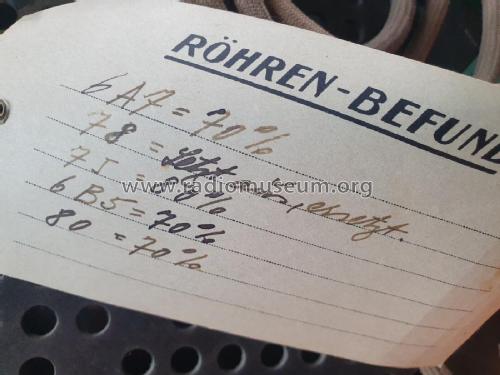 RÖHREN-BEFUND
6A7 = 70%
78 = ersetzt.
75 = 50%
6B5 = 70%
80 = 70%
www.radiomuseum.org